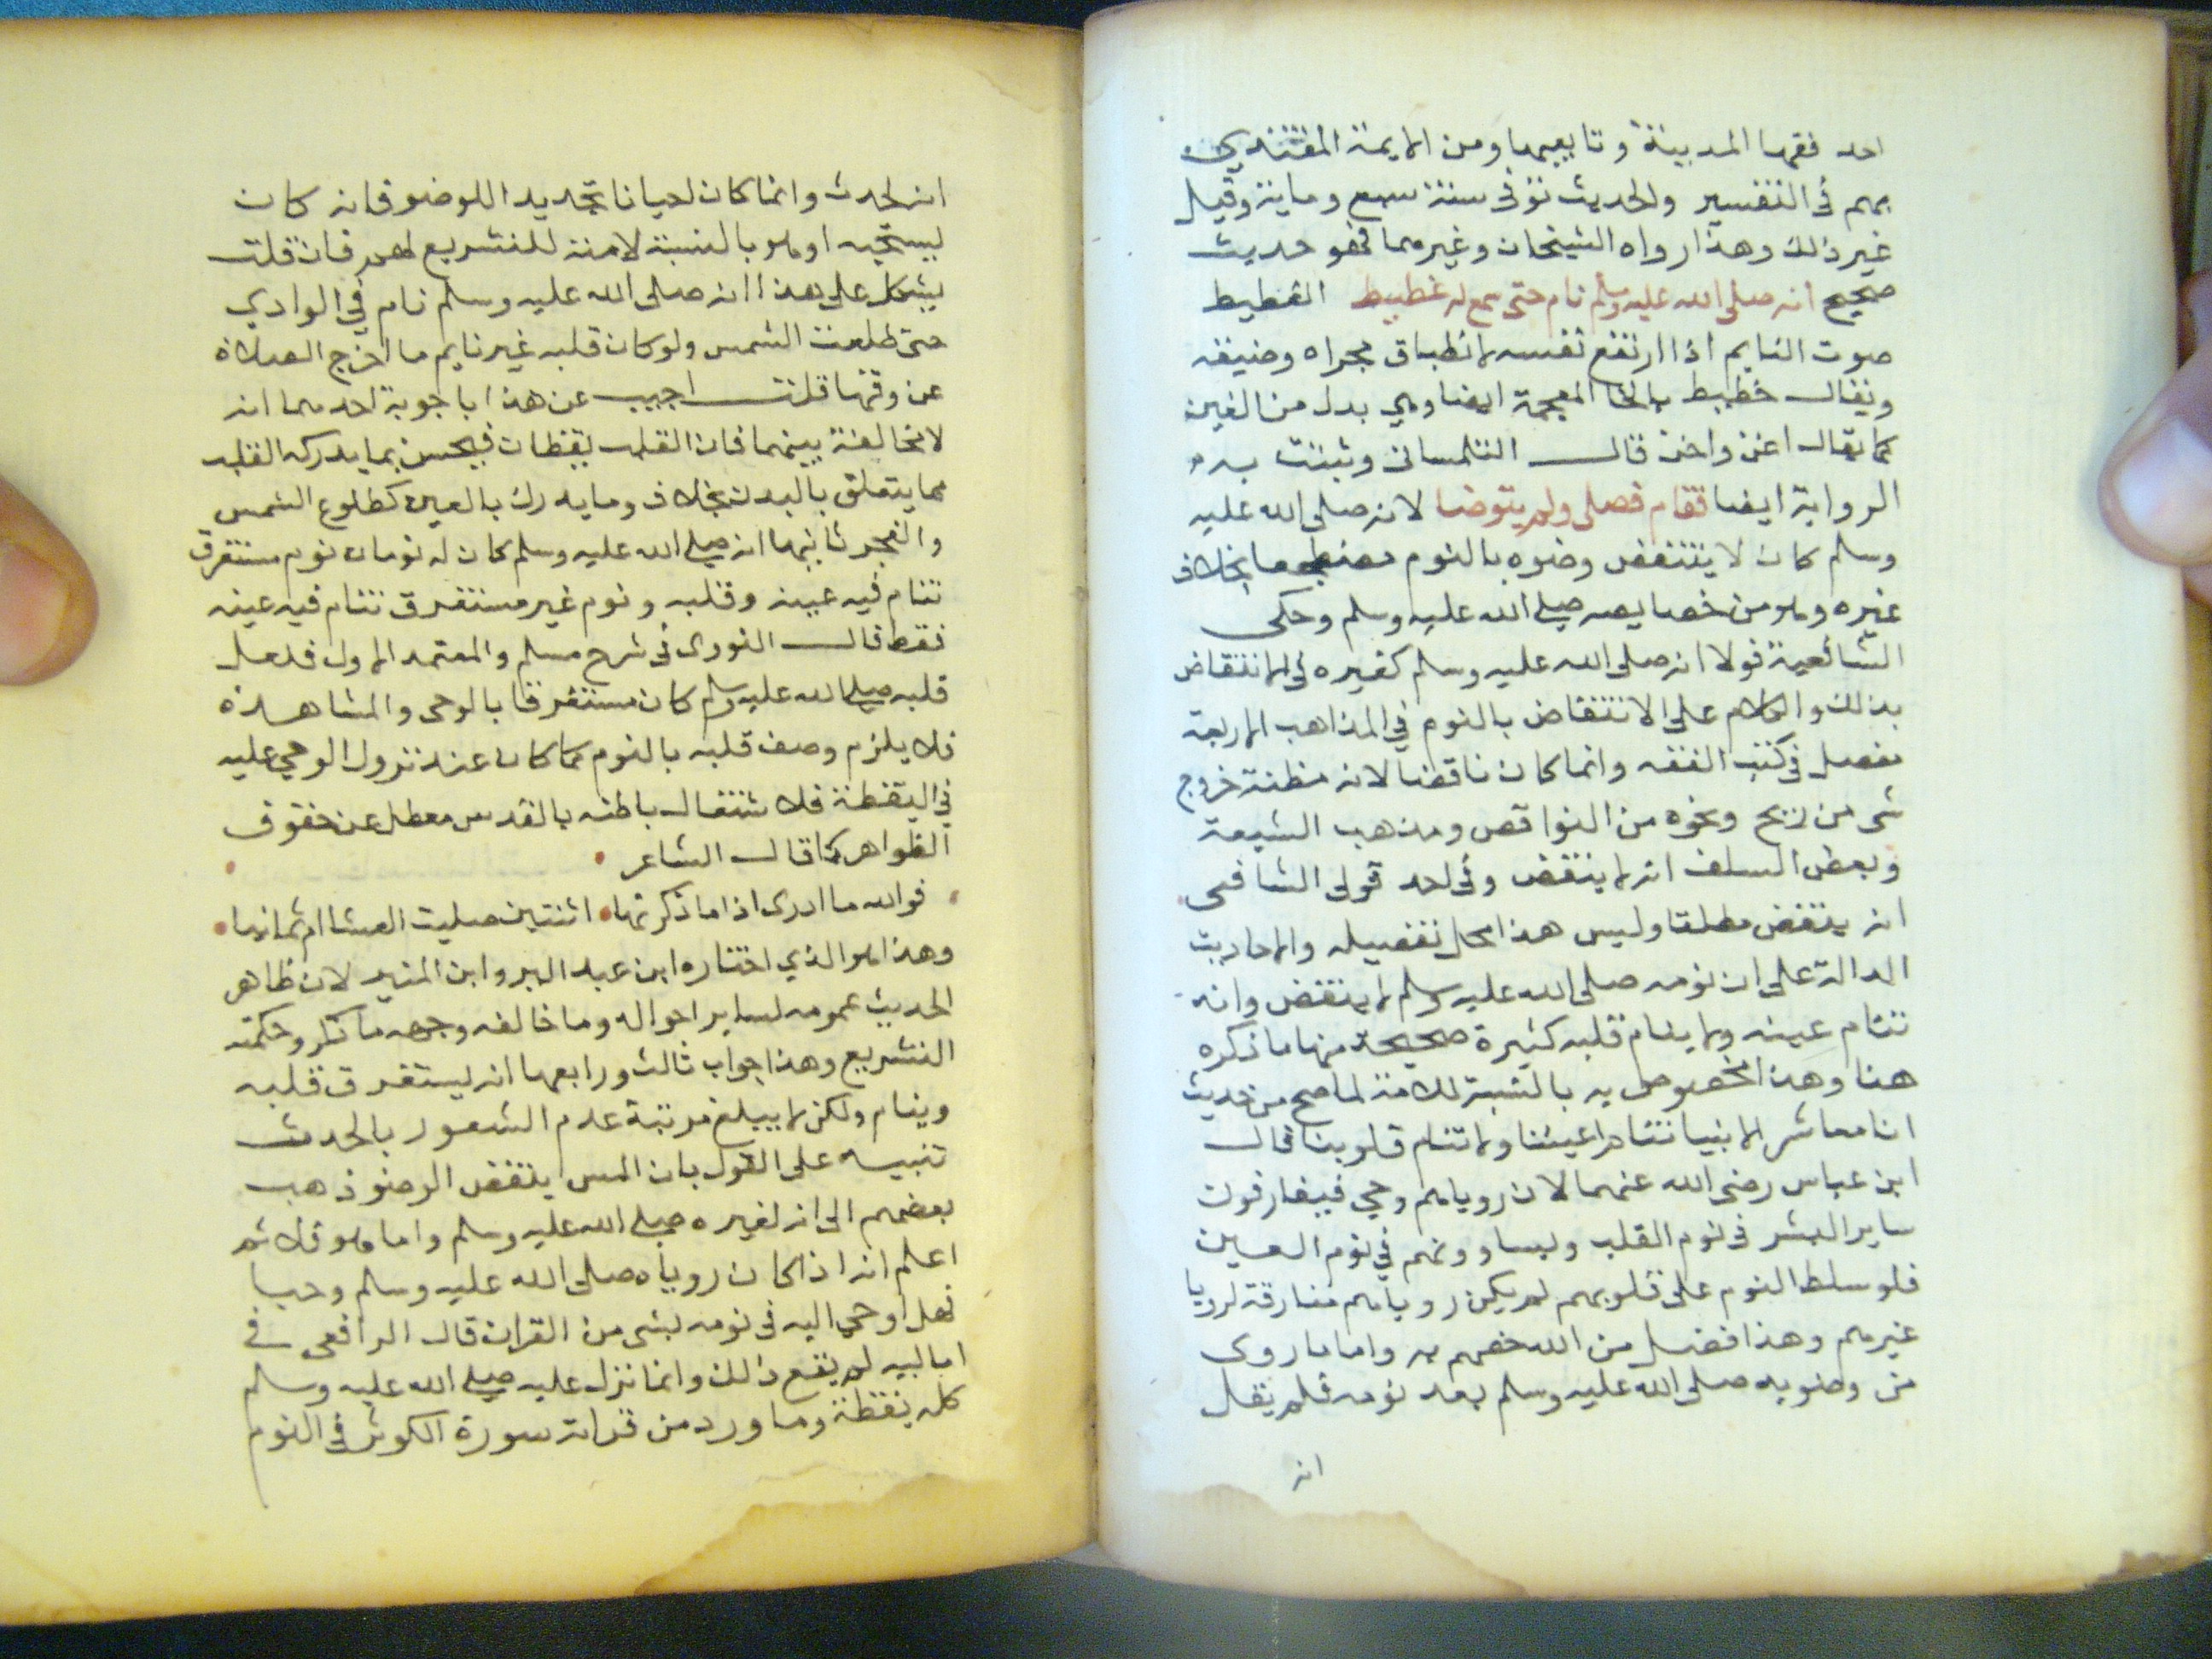 احد فقها المدينة وتابعيها ومن الايمة المقتدي
بهم في التفسير والحديث توفى سنة سبع وماية وقيل
غير ذلك وهذا رواه الشيخان وغيرهما فهو حديث
صحيح انه صلى الله عليه وسلم نام حتى سمع له غطيط الغطيط
صوت النايم اذا ارتفع نفسه لانطباق مجراه وضيقه
ويقال خطيط بالخا المعجمة ايضا وهي بدل من الغين
كما يقال اغن واخن قال التلمسانى وثبتت به
الرواية ايضا فقام فصلى ولم يتوضا لانه صلى الله عليه
وسلم كان لا ينتقض وضوه بالنوم مضطجعا بخلاف
غيره وهو من خصايصه صلى الله عليه وسلم وحكى
الشافعية قولا انه صلى الله عليه وسلم كغيره في الانتقاض
بذلك والكلام على الانتقاض بالنوم في المذاهب الاربعة
مفصل في كتب الفقه وانما كان ناقضا لانه مظنة خروج
شى من ريح ونحوه من النواقص ومذهب الشيعة
وبعض السلف انه لا ينقض وفى احد قولى الشافعى
انه ينقض مطلقا وليس هذا محل تفصيله والاحاديث
الدالة على ان نومه صلى الله عليه وسلم لا ينقض وانه
تنام عينه ولا ينام قلبه كثيرة صحيحة منها ما ذكره
هنا وهذا مخصوص به بالنسبة للامة لما صح من حديث
انا معاشر الانبيا تنام اعيننا ولا تنام قلوبنا قال
ابن عباس رضى الله عنهما لان روياهم وحي فيفارقون
ساير البشر فى نوم القلب ويساوونهم في نوم العين
فلو سلط النوم على قلوبهم لم يكن روياهم مفارقة لرويا
غيرهم وهذا فضل من الله خصهم به واما ما روى
من وضويه صلى الله عليه وسلم بعد نومه فلم يقل
انه
انه لحدث وانما كان احيانا تجديدا للوضو فانه كان
يستحبه او هو بالنسبة لامته للتشريع لهم فان قلت
يشكل على هذا انه صلى الله عليه وسلم نام في الوادي
حتى طلعت الشمس ولو كان قلبه غير نايم ما اخرج الصلاة
عن وقتها قلت اجيب عن هذا باجوبة احدهما انه
لا مخالفة بينهما فان القلب يقظان فيحس بما يدركه القلب
مما يتعلق بالبدن بخلاف وما يدرك بالعين كطلوع الشمس
والفجر ثانيها انه صلى الله عليه وسلم كان له نومان نوم مستغرق
تنام فيه عينه وقلبه ونوم غير مستغرق تنام فيه عينه
فقط قال النووى فى شرح مسلم والمعتمد الاول فلعل
قلبه صلى الله عليه وسلم كان مستغرقا بالوحى والمشاهدة
فلا يلزم وصف قلبه بالنوم كما كان عند نزول الوحي عليه
في اليقظة فلاشتغال باطنه بالقدس معطل عن حقوق
الظواهر كما قال الشاعر
فوالله ما ادرى اذا ما ذكرتها اثنتين صليت العشا ام ثمانيا
وهذا هو الذي اختاره ابن عبد البر وابن المنير لان ظاهر
الحديث عمومه لساير احواله وما خالفه وجهه ما ذكر وحكمته
التشريع وهذا جواب ثالث ورابعها انه يستغرق قلبه
وينام ولكن لا يبلغ مرتبة عدم الشعور بالحدث
تنبيه على القول بان المس ينقض الوضو ذهب
بعضهم الى انه لغيره صلى الله عليه وسلم واما هو فلا ثم
اعلم انه اذا كان روياه صلى الله عليه وسلم وحيا
فهل اوحي اليه فى نومه بشى من القران قال الرافعى فى
اماليه لم يقع ذلك وانما نزل عليه صلى الله عليه وسلم
كله يقظة وما ورد من قراته سورة الكوثر في النوم